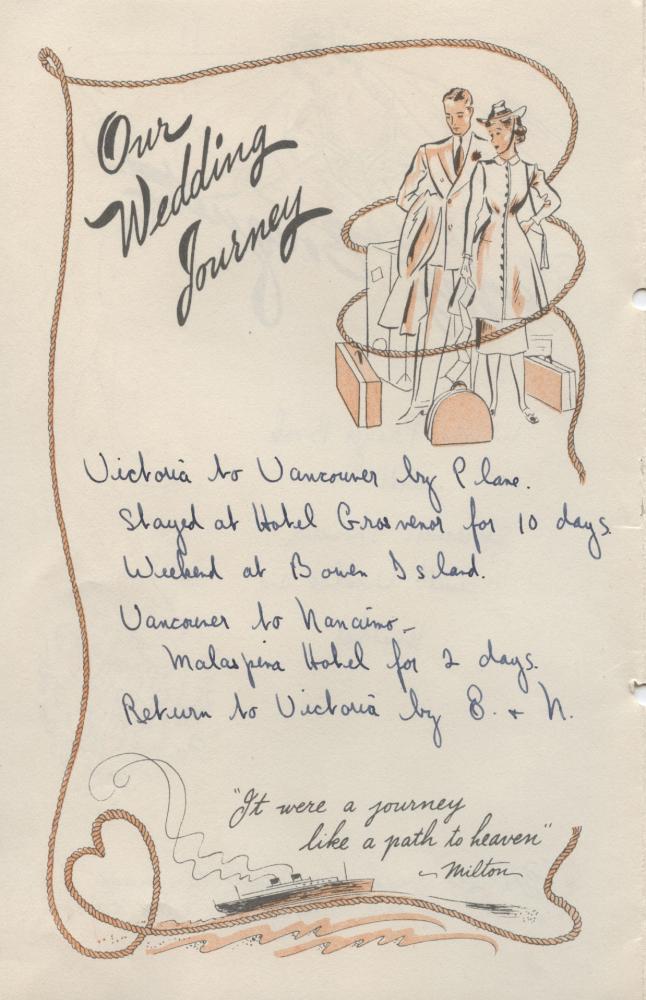 Our
Wedding
Journey
Victoria to Vancouver by Plane.
Stayed at Hotel Grosvenor for 10 days.
Weekend at Bowen Island.
Vancouver to Nanaimo -
Malaspina Hotel for 2 days.
Return to Victoria by E. + N.
"It were a journey
like a path to heaven"
~ Milton